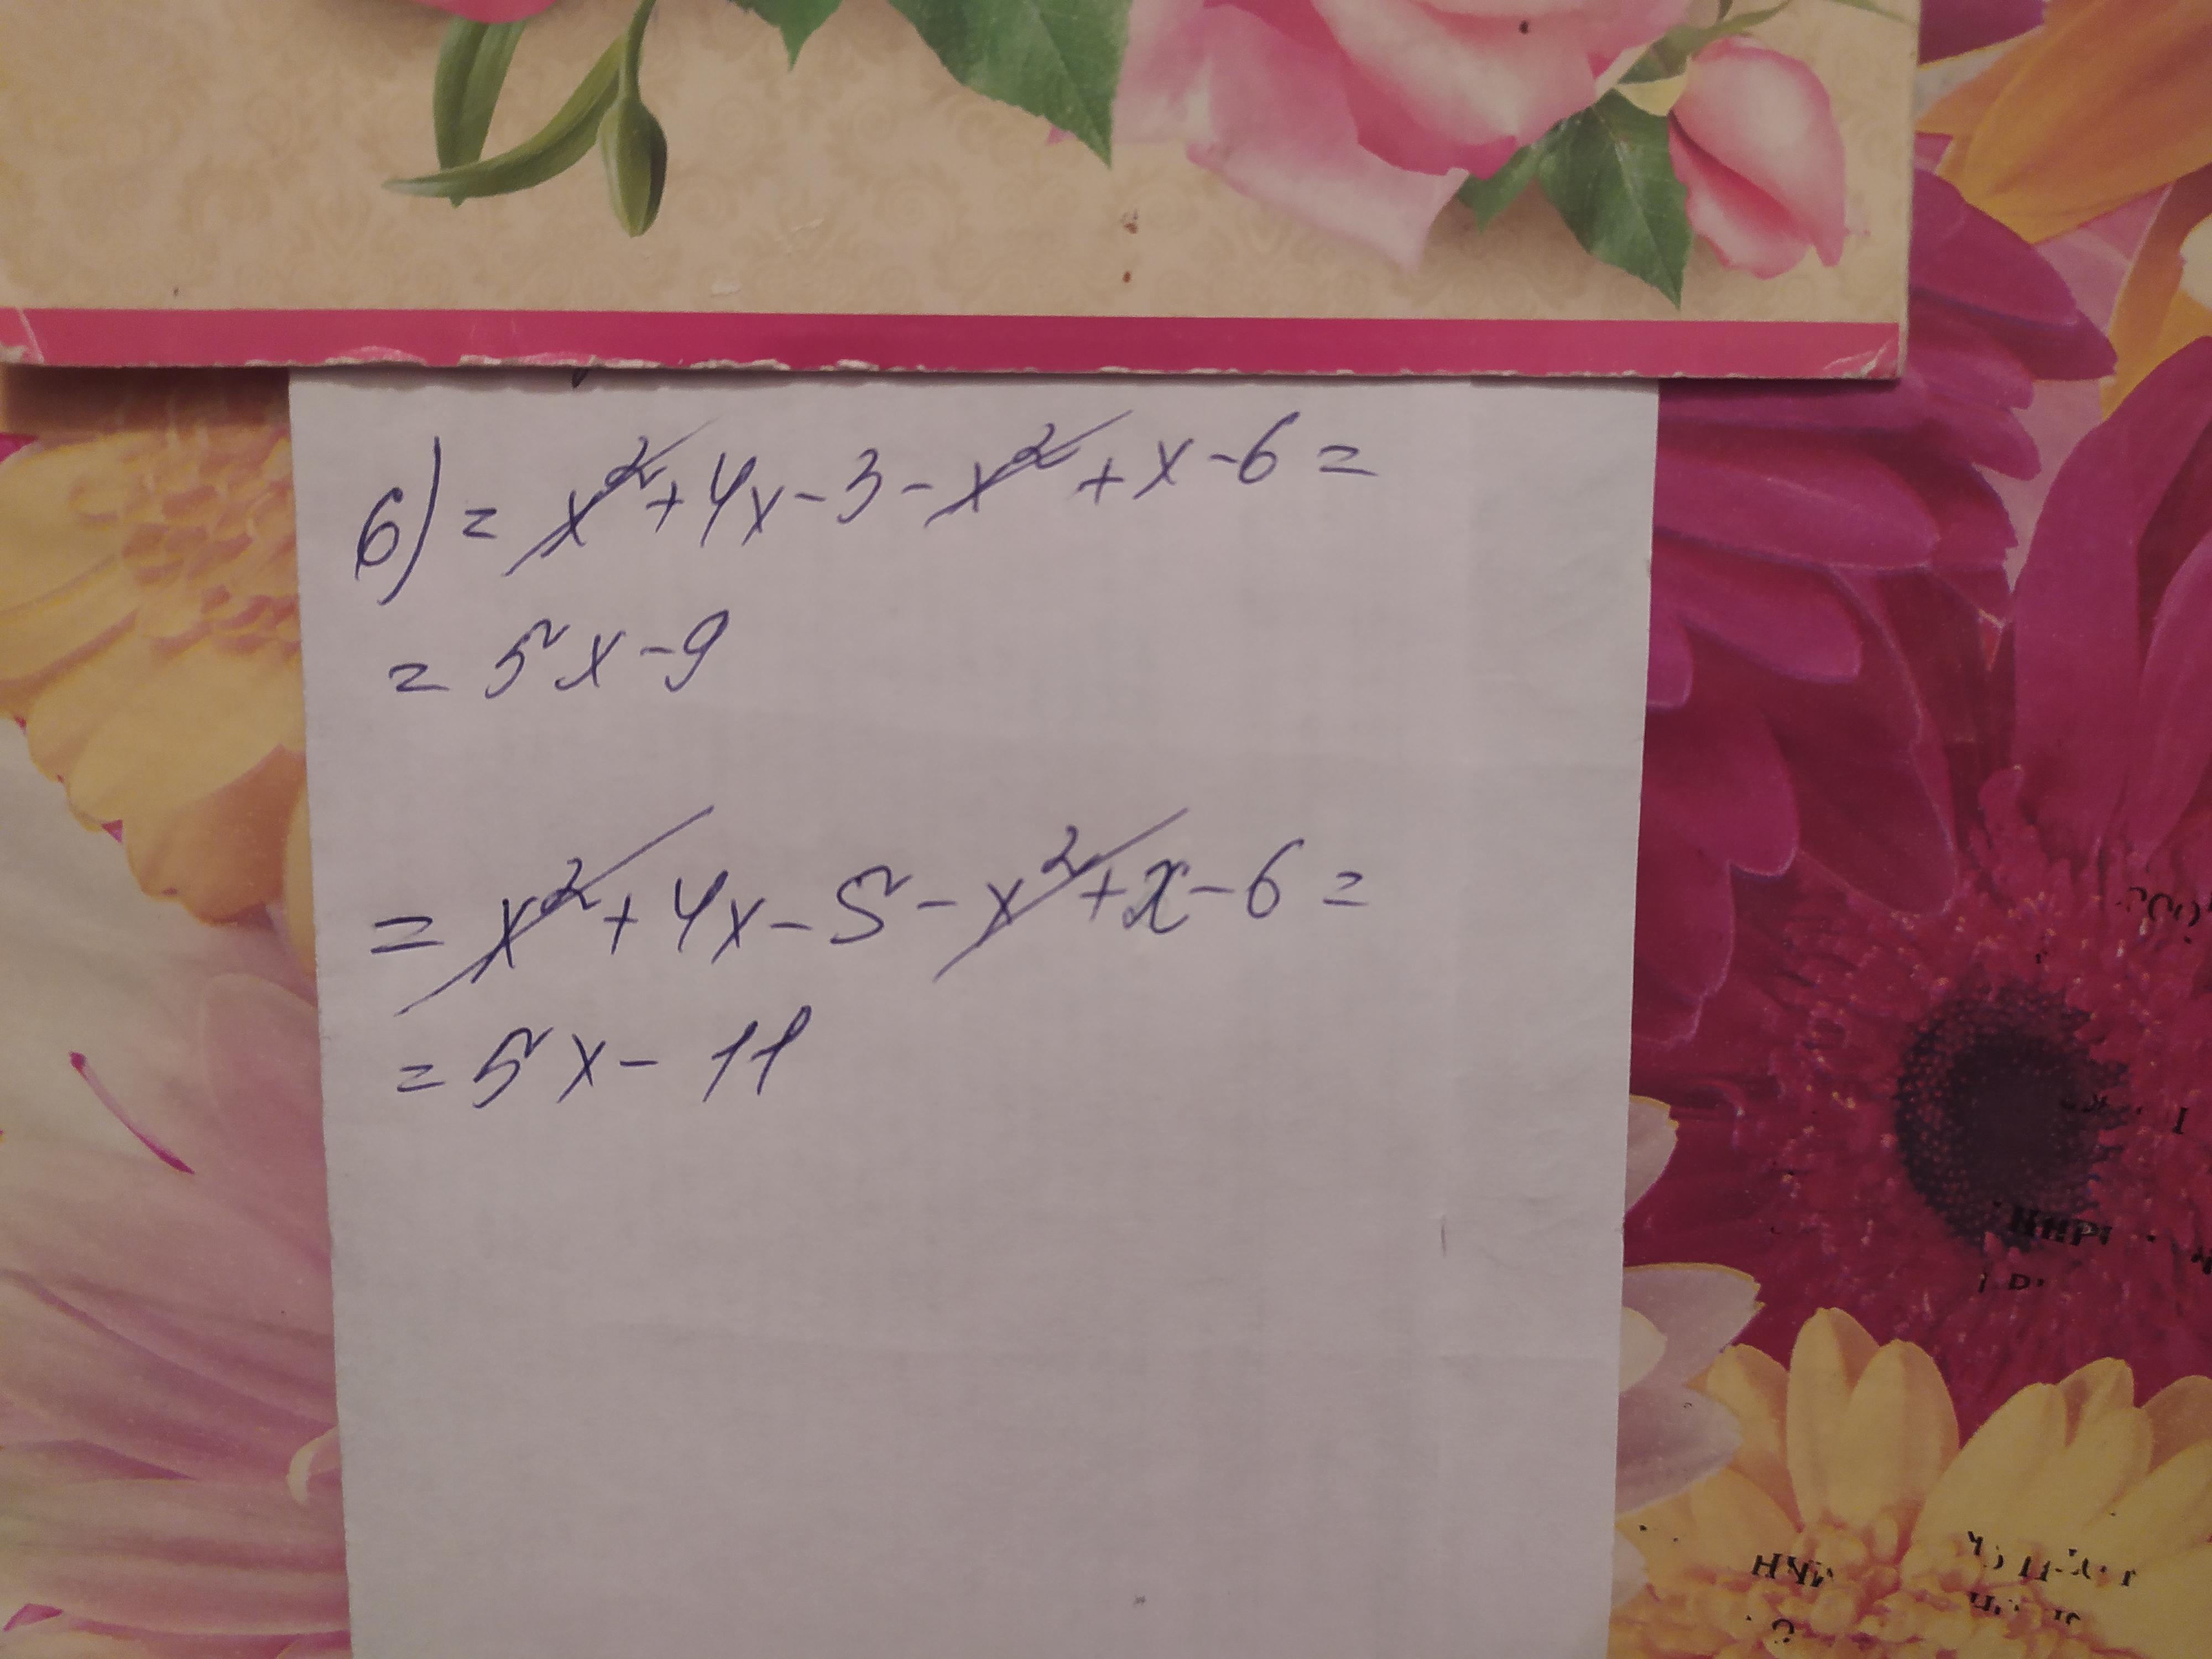 6) = x² + 4x - 3 - x² + x - 6 =
= 5x - 9
= x² + 4x - 5 - x² + x - 6 =
= 5x - 11